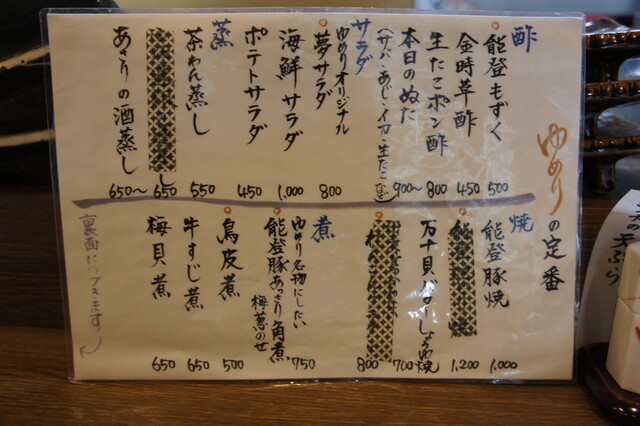 ゆめりの定番
酢
能登もずく 500
金時草酢 450
生たこポン酢 800
本日のぬた 900～
(サバ・あじ・イカ・生たこなど)
サラダ
ゆめりオリジナル
夢サラダ 800
海鮮サラダ 1,000
ポテトサラダ 450
蒸
茶わん蒸し 550
650
あさりの酒蒸し 650～
焼
能登豚焼 1,000
1,200
万十貝バターしょうゆ焼 700
800
煮
ゆめり名物にしたい
能登豚あっさり角煮 750
梅葱のせ
鳥皮煮 500
牛すじ煮 650
梅貝煮 650
裏面につづきますっ
の天ぷら